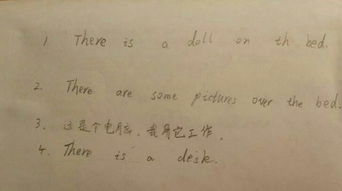 1. There is a doll on th bed.
2. There are some pictures over the bed.
3. 这是个电脑. 我用它工作.
4. There is a desk.